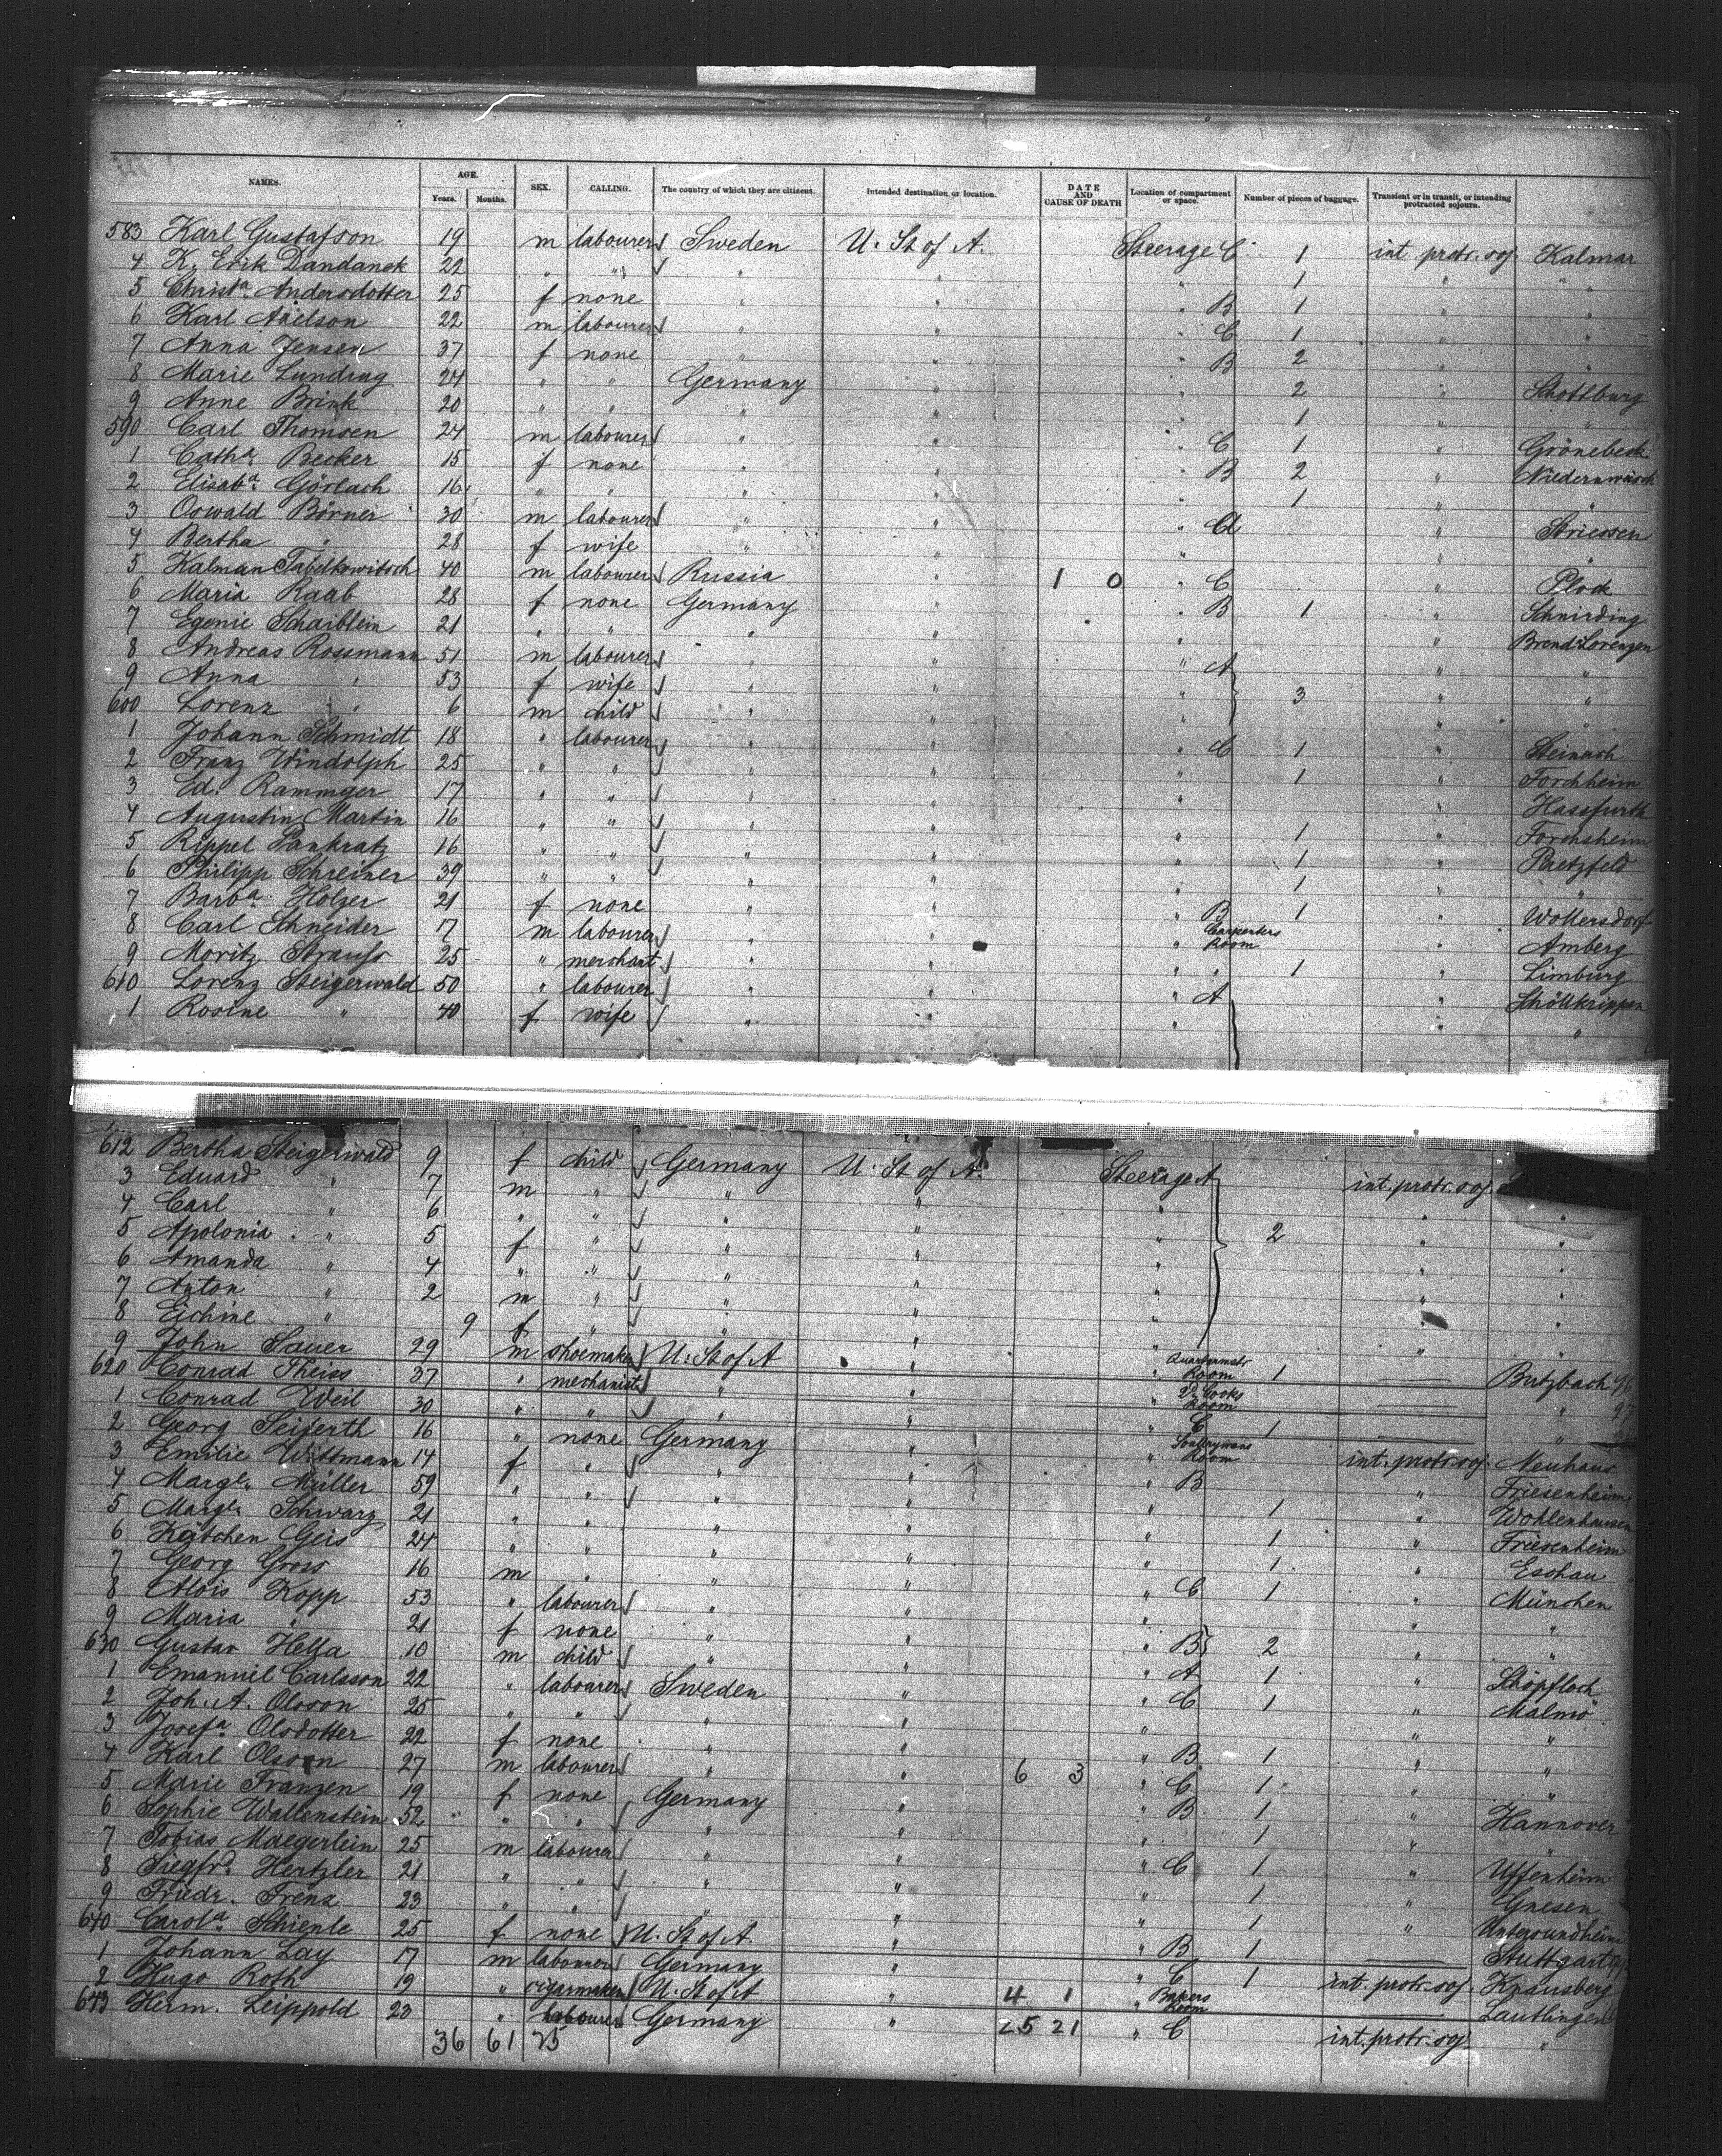 NAMES. AGE. Years. Months. SEX. CALLING. The country of which they are citizens. Intended destination or location. DATE AND CAUSE OF DEATH Location of compartment or space. Number of pieces of baggage. Transient or in transit, or intending protracted sojourn.
583 Karl Gustafson 19 m labourer Sweden U. St of A. Steerage C 1 int protr. soj. Kalmar
4 K. Erik Dandanek 22 " " " " " 1 " "
5 Christa. Andersdotter 25 f none " " " B 1 " "
6 Karl Axelson 22 m labourer " " " C 1 " "
7 Anna Jensen 37 f none " " " B 2 " "
8 Marie Lundrug 24 " " Germany " " 2 " Schottburg
9 Anne Brink 20 " " " " " 1 " "
590 Carl Thomsen 24 m labourer " " " C 1 " Grönebeck
1 Catha. Becker 15 f none " " " B 2 " Niedernwäsch
2 Elisaba. Görlach 16 " " " " " 1 " "
3 Oswald Börner 30 m labourer " " " A " Striessen
4 Bertha " 28 f wife " " " " "
5 Kalman Tabilkowitsch 40 m labourer Russia " 1 0 " C " Plock
6 Maria Raab 28 f none Germany " " B 1 " Schnirding
7 Egenie Schaiblein 21 " " " " " " Brend Lorenzen
8 Andreas Rossmann 51 m labourer " " " A " "
9 Anna " 53 f wife " " " 3 " "
600 Lorenz " 6 m child " " " " "
1 Johann Schmidt 18 " labourer " " " C 1 " Steinach
2 Franz Windolph 25 " " " " " 1 " Forchheim
3 Ed. Rammger 17 " " " " " " Hassfurth
4 Augustin Martin 16 " " " " " 1 " Forchsheim
5 Rippel Pankratz 16 " " " " " 1 " Pretzfeld
6 Philipp Schreiner 39 " " " " " 1 " "
7 Barba. Holzer 21 f none " " " B 1 " Wollersdorf
8 Carl Schneider 17 m labourer " " " Carpenters Room " Amberg
9 Moritz Strauss 25 " merchant " " " " 1 " Limburg
610 Lorenz Steigerwald 50 " labourer " " " A " Schöllkrippen
1 Rosine " 40 f wife " " " " "
612 Bertha Steigerwald 9 f child Germany U. St of A. Steerage A int. protr. soj.
3 Eduard " 7 m " " " " " "
4 Carl " 6 " " " " " 2 " "
5 Apolonia " 5 f " " " " " "
6 Amanda " 4 " " " " " " "
7 Anton " 2 m " " " " " "
8 Eichine " 9 f " " " " "
9 John Sauer 29 m shoemaker U. St of A " " Quartermstr Room 1 Butzbach 96
620 Conrad Theiss 37 " mechanist " " " 2d Cooks Room " 97
1 Conrad Weil 30 " " " " " C 1 "
2 Georg Seiferth 16 " none Germany " " Room int. protr. soj. Neuhaus
3 Emilie Wittmann 14 f " " " " B " Friesenheim
4 Margr. Müller 59 " " " " " 1 " Wohlenhausen
5 Margr. Schwarz 21 " " " " " 1 " Friesenheim
6 Kätchen Geis 24 " " " " " 1 " Eschau
7 Georg Gross 16 m " " " " C 1 " München
8 Alois Kopp 53 " labourer " " " " "
9 Maria " 21 f none " " " B 2 " "
630 Gustav Hella 10 m child " " " A 1 " Schöpfloch
1 Emanuel Carlsson 22 " labourer Sweden " " C 1 " Malmö
2 Joh. A. Olsson 25 " " " " " " "
3 Josefa. Olsdotter 22 f none " " " B 1 " "
4 Karl Olsson 27 m labourer " " 6 3 " C 1 " "
5 Marie Franzen 19 f none Germany " " B 1 " Hannover
6 Sophie Wallenstein 52 " " " " " 1 " "
7 Tobias Maegerlein 25 m labourer " " " C 1 " Uffenheim
8 Siegfrd. Hertzler 21 " " " " " 1 " Gnesen
9 Friedr. Frenz 23 " " " " " 1 " Untersundheim
640 Carola. Schienle 25 f none U. St of A. " " B 1 Stuttgart
1 Johann Lay 17 m labourer Germany " " C 1 int. protr. soj. Krausberg
2 Hugo Roth 19 " cigarmaker U. St of A " 4 1 " Bakers Room Lautlingen
643 Herm. Leippold 23 " labourer Germany " 25 21 " C int. protr. soj. "
36 61 75